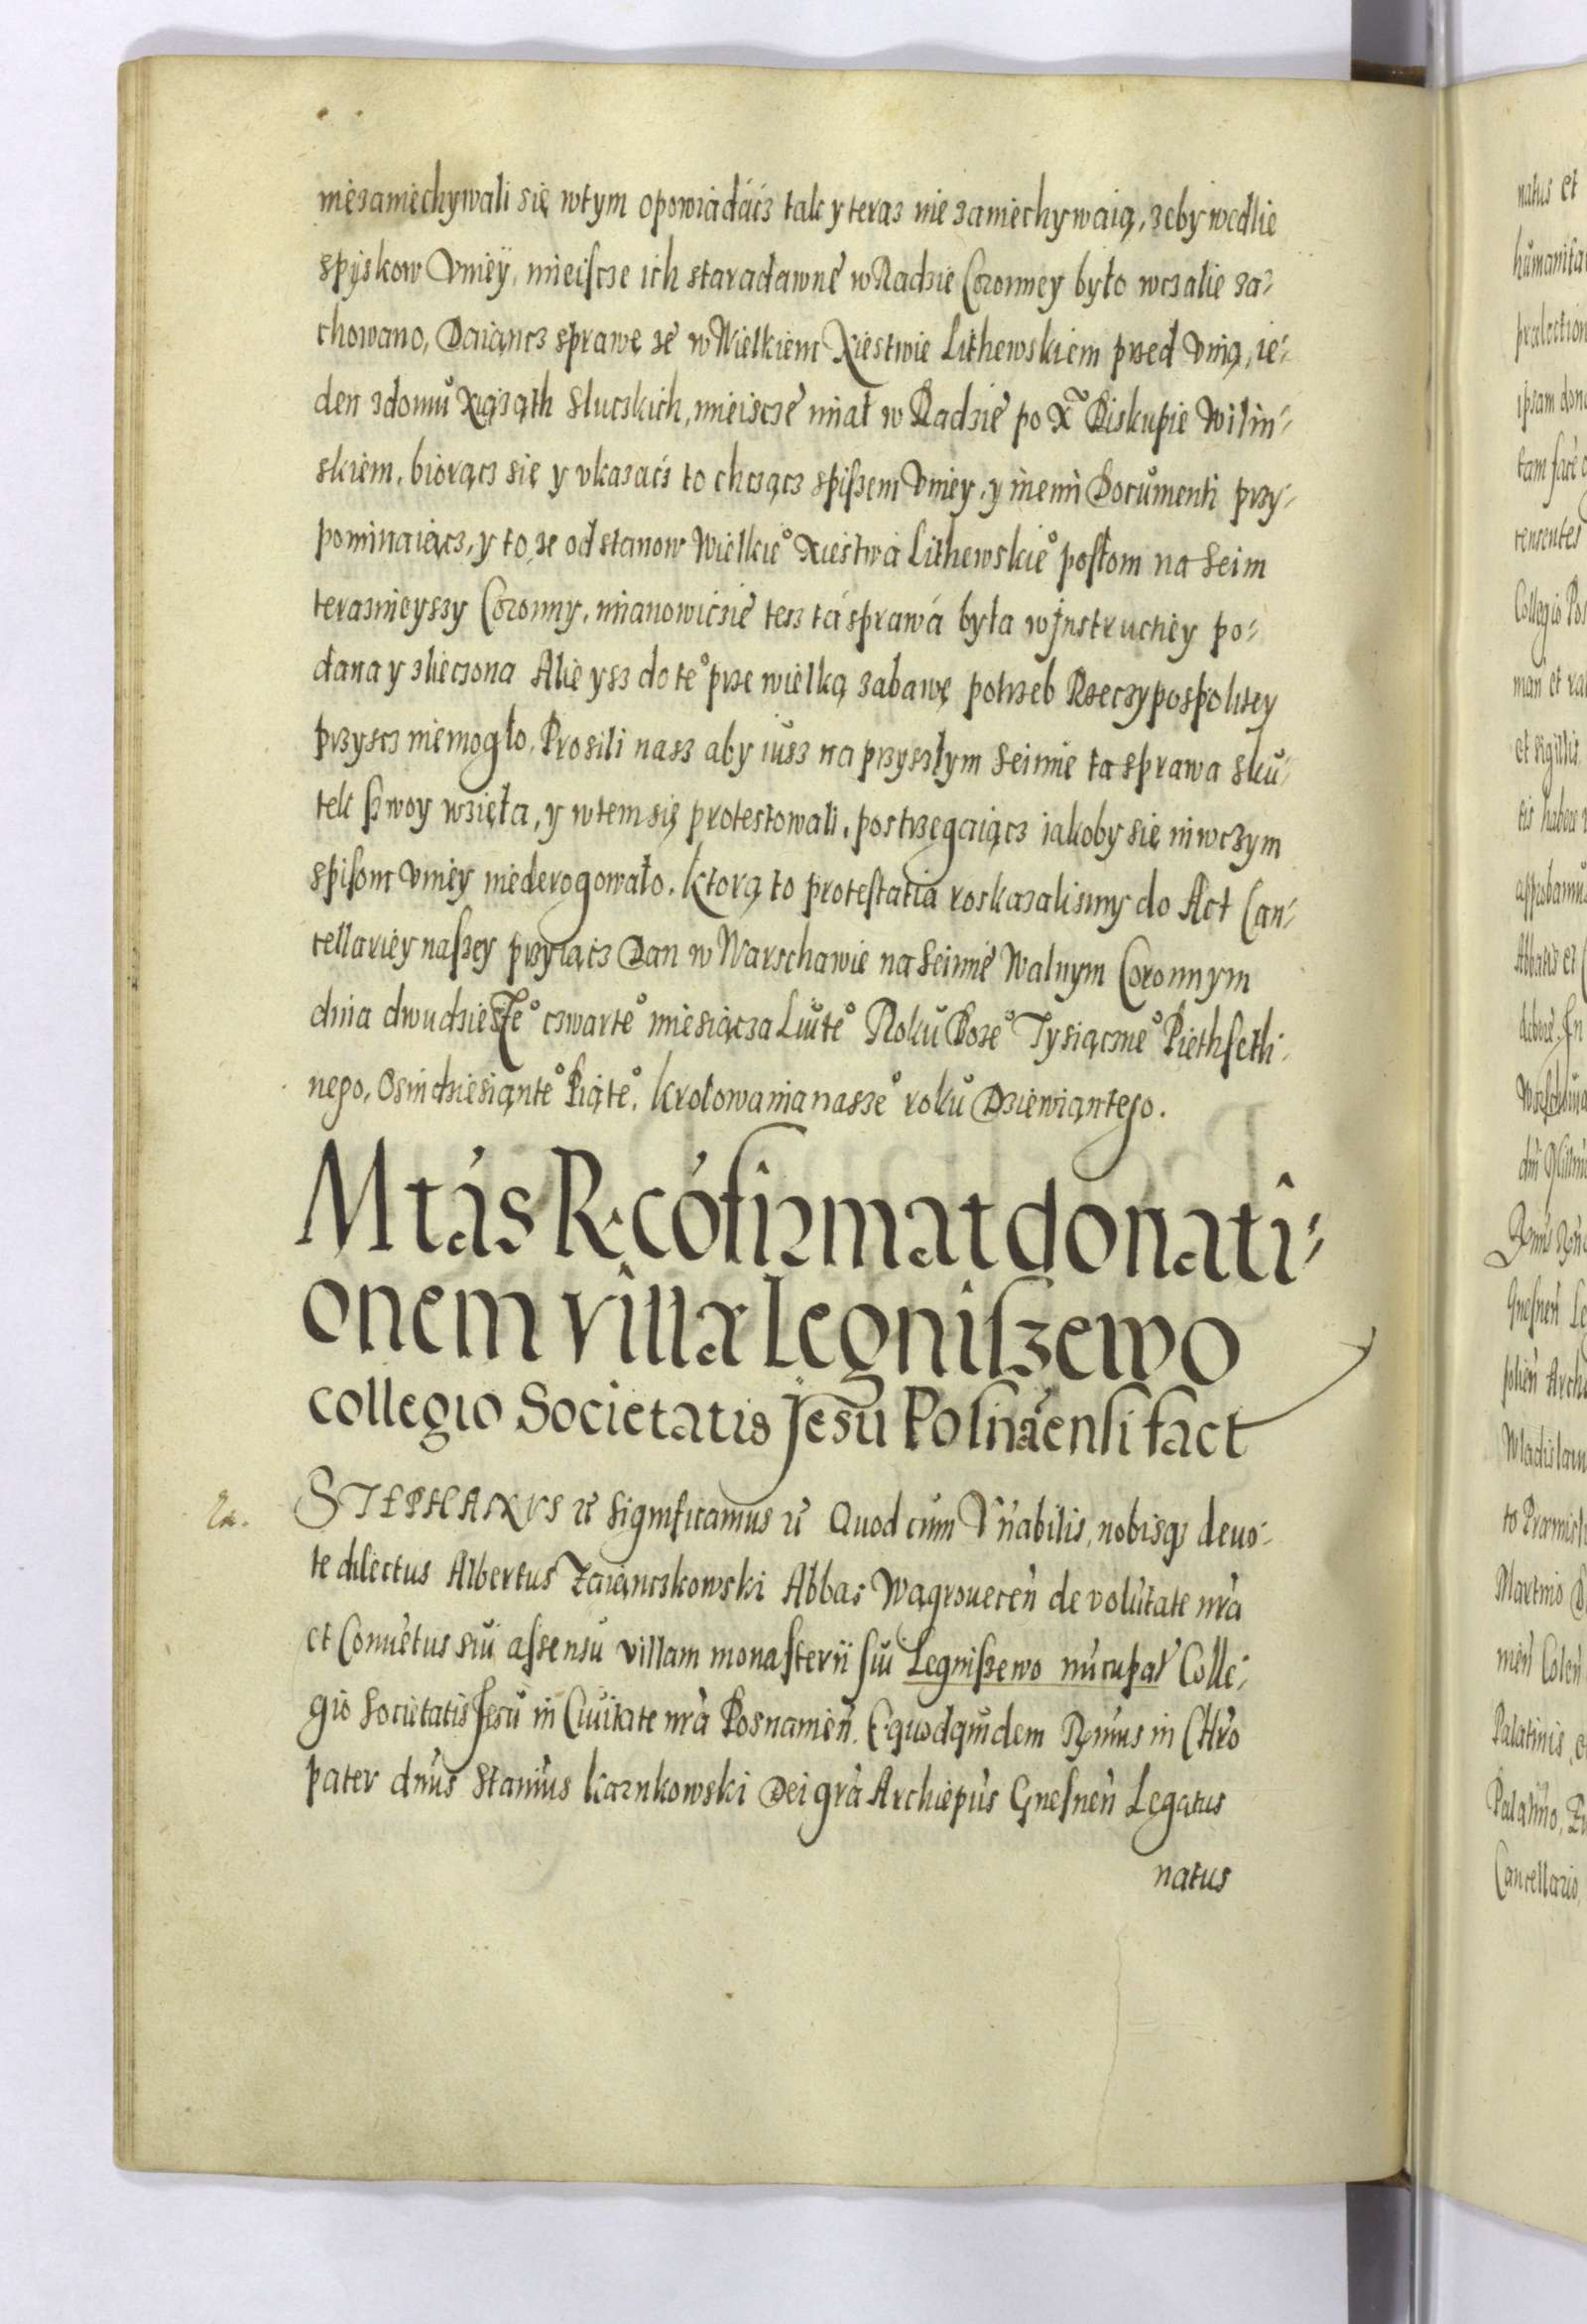 niezaniechywali się wtym opowiadácz tak y teraz nie zaniechywaią, zeby wedlie
spiskow Vniey, mieiscze ich staradawne w Radzie Coronney było wczalie za-
chowano, Daiąncz sprawę ze w Wielkiem Xiestwie Lithewskiem przed Vnią, ie-
den zdomu Xiąząth Sluczkich, mieiscze miał w Radzie po X Biskupie Wilin-
skiem, biorącz się y vkazacz to chczącz spiszem Vniey, y inemi Documenti przy-
pominaiącz, y to, ze od stanow Wielkie° Xiestwa Lithewskie° posłom na Seim
teraznieyszy Coronny, mianowiczie tesz tá sprawá była w Jnstructiey po-
dana y zlieczona Alie ysz do te° prze wielką zabawę potrzeb Rzeczypospolitey
przyscz niemogło, Prosili nasz aby iusz na przyszłym Seimie ta sprawa sku-
tek swoy wzięła, y wtem się protestowali, postrzegaiącz iakoby się niwczym
spisom Vniey niederogowało. Ktorą to protestatia roskazalismy do Act Can-
cellariey naszey przyiącz Dan w Warschawie na Seimie Walnym Coronnym
dnia dwudzieste° czwarte° miesiącza Lute° Roku Boze° Tysiączne° Piethseth-
nego, Osindziesiąnte° Piąte°. Krolowania nasze° roku Dziewiąntego.
Mtás R. cófirmat donati-
onem villæ Legniszewo
collegio Societatis Jesu Posnáensi fact
STEPHANVS etc Significamus etc Quod cum Vnabilis, nobisq deuo-
te dilectus Albertus Zaiąnczkowski Abbas Wągrouecen de volutate nra
et Conuetus sui assensu villam monasterii sui Legniszewo nucupat Colle-
gio Societatis Jesu in Ciuitate nra Posnanien. Equodquidem Rmus in Chro
pater dnus Stanius Karnkowski Dei gra Archiepus Gnesnen Legatus
natus